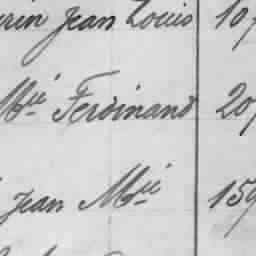 rin Jean Louis 10
Mie Ferdinand 20
Jean Mie 159